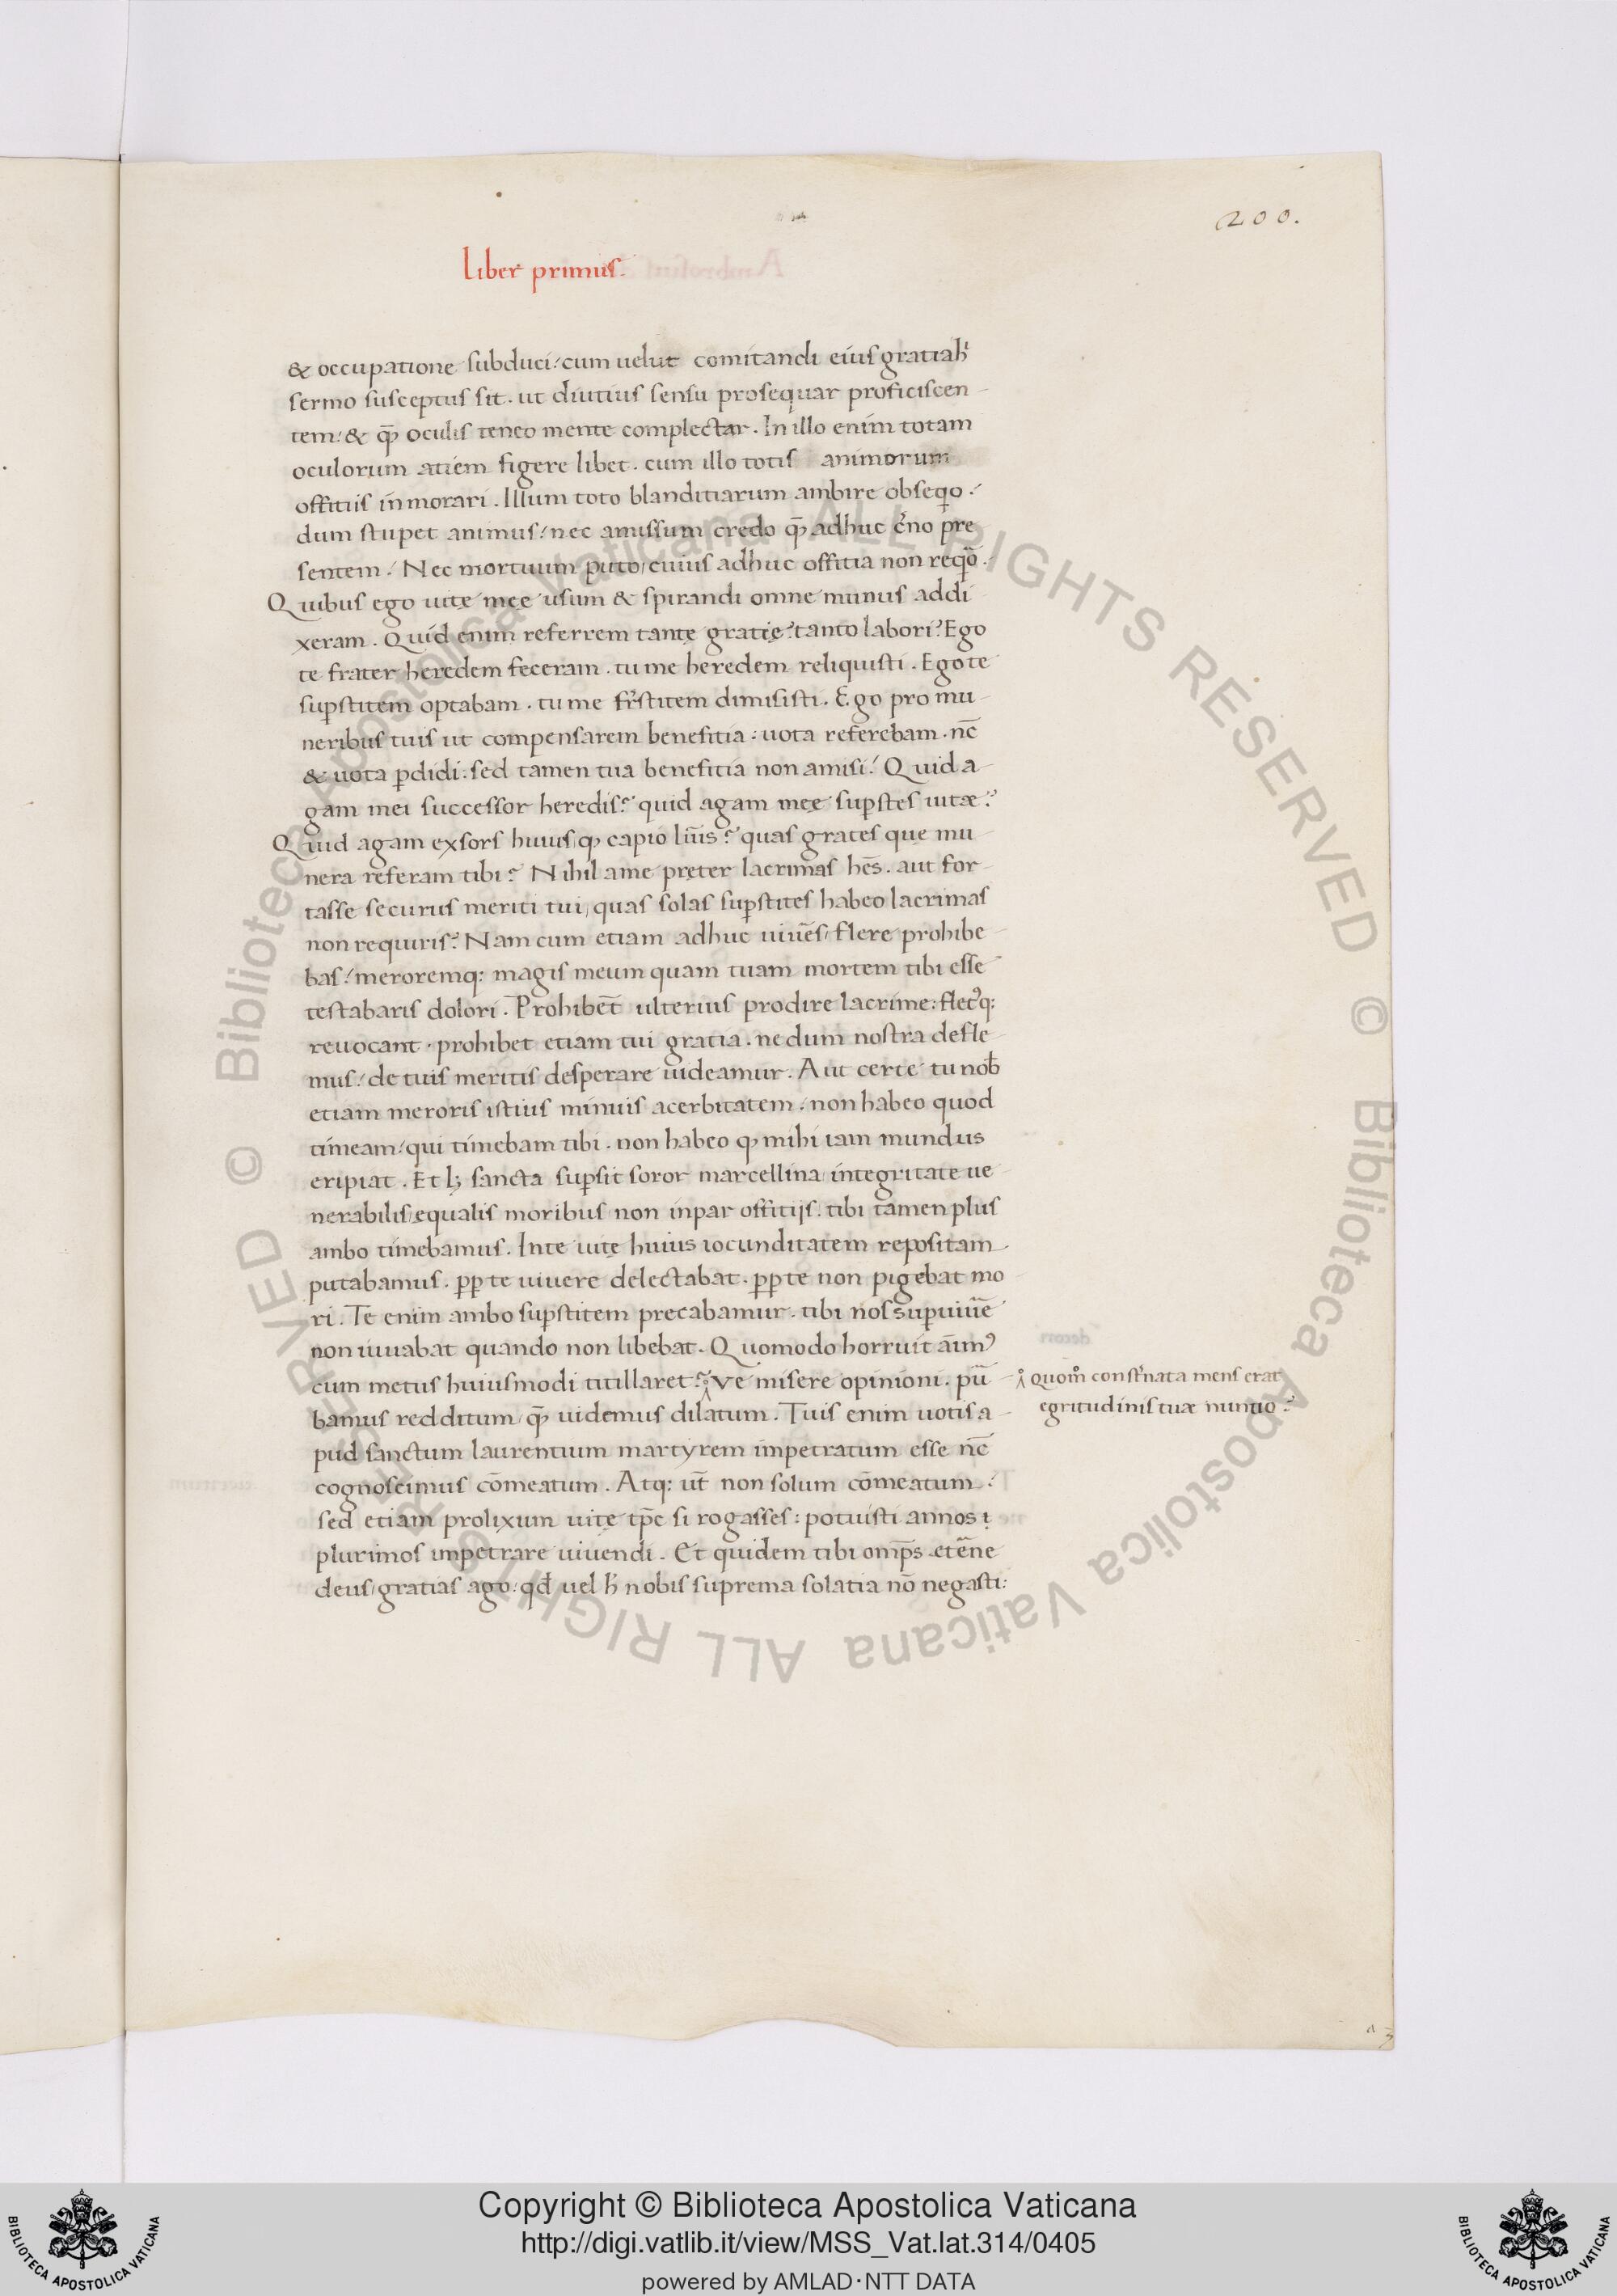 200.
liber primus.
& occupatione subduci: cum uelut comitandi eius gratia hͥ
sermo susceptus sit. ut diutius sensu prosequar proficiscen-
tem: & qp̄ oculis teneo mente complectar. In illo enim totam
oculorum atiem figere libet. cum illo totis animorum
offitiis inmorari. Illum toto blanditiarum ambire obseqͥo:
dum stupet animus: nec amissum credo qp̄ adhuc c̄no pre
sentem: Nec mortuum puto, cuius adhuc offitia non reqͥro.
Quibus ego uitę meę usum & spirandi omne munus addi
xeram. Quid enim referrem tantę gratię? tanto labori? Ego
te frater heredem feceram. tu me heredem reliquisti. Ego te
suꝑstitem optabam. tu me sr̄stitem dimisisti. Ego pro mu-
neribus tuis ut compensarem benefitia: uota referebam. nc̄
& uota ꝑdidi: sed tamen tua benefitia non amisi: Quid a-
gam mei successor heredis? quid agam meę suꝑstes uitæ?
Quid agam exsors huius qp capio lūis? quas grates que mu-
nera referam tibi? Nihil a me pręter lacrimas hēs. aut for-
tasse securus meriti tui, quas solas suꝑstites habeo lacrimas
non requiris? Nam cum etiam adhuc uiuēs, flere prohibe-
bas: meroremq: magis meum quam tuam mortem tibi esse
testabaris dolori. Prohibent̄ ulterius prodire lacrime: fletꝰq:
reuocant. prohibet etiam tui gratia. ne dum nostra defle-
mus: de tuis meritis desperare uideamur. Aut certe tu nob̄
etiam meroris istius minuis acerbitatem: non habeo quod
timeam: qui timebam tibi. non habeo qp mihi iam mundus
eripiat. Et lꝫ sancta suꝑsit soror marcellina integritate ue-
nerabilis, equalis moribus non inpar offitijs. tibi tamen plus
ambo timebamus. In te uitę huius iocunditatem repositam
putabamus. ꝓꝑ te uiuere delectabat. ꝓꝑ te non pigebat mo-
ri. Te enim ambo suꝑstitem precabamur. tibi nos suꝑuiuē
non iuuabat quando non libebat. Quomodo horruit aīmꝰ
cum metus huiusmodi titillaret? Ve misere opinioni. pu͂-
bamus redditum, qp̄ uidemus dilatum. Tuis enim uotis a-
pud sanctum laurentium martyrem impetratum esse nc̄
cognoscimus cōmeatum. Atq: ut̄ non solum cōmeatum:
sed etiam prolixum uitę tp̄c si rogasses: potuisti annos ı
plurimos impetrare uiuendi. Et quidem tibi omp̄s. etn͂e
deus, gratias ago: qd̄ uel h̄ nobis suprema solatia nō negasti:
quom̊ const̄nata mens erat
egritudinis tuæ nuntio?
© Biblioteca Apostolica Vaticana ALL RIGHTS RESERVED © Biblioteca Apostolica Vaticana ALL RIGHTS RESERVED
BIBLIOTECA APOSTOLICA VATICANA
Copyright © Biblioteca Apostolica Vaticana
http://digi.vatlib.it/view/MSS_Vat.lat.314/0405
powered by AMLAD·NTT DATA
BIBLIOTECA APOSTOLICA VATICANA